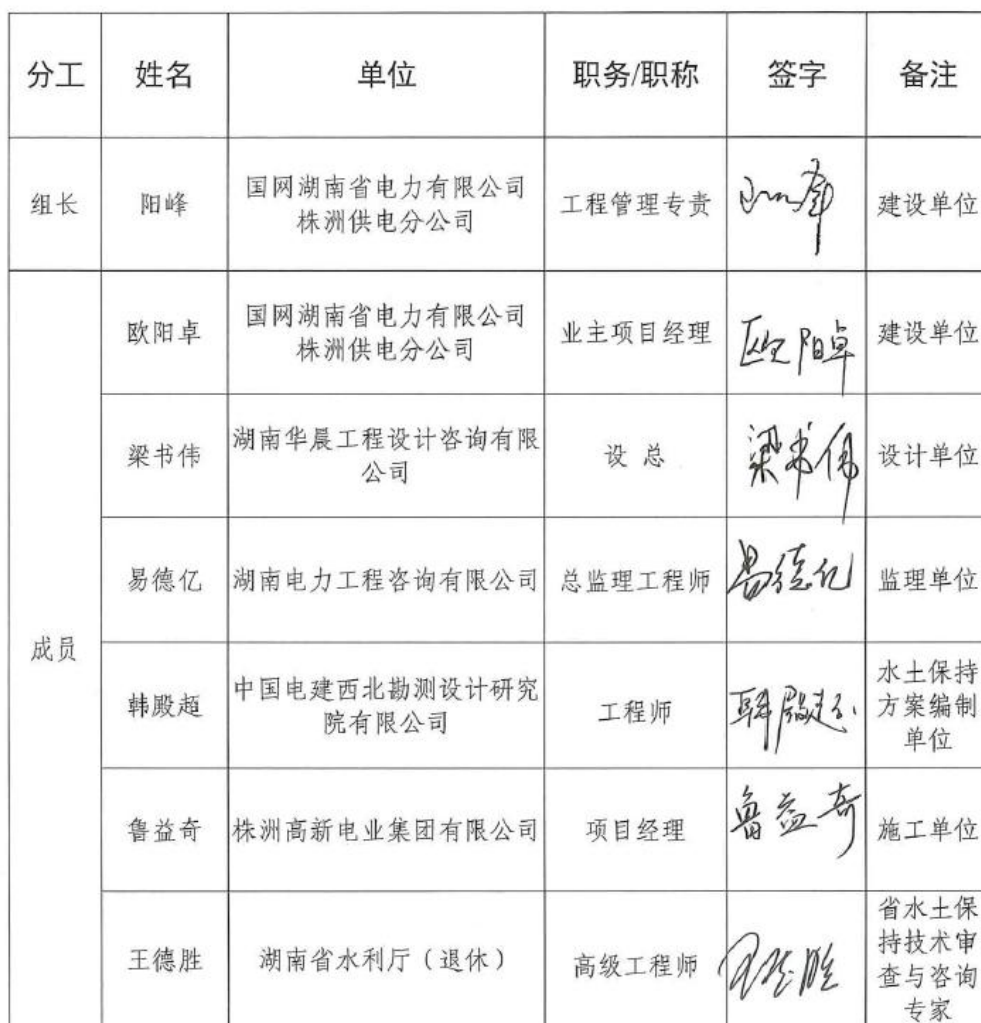 分工 姓名 单位 职务/职称 签字 备注
组长 阳峰 国网湖南省电力有限公司
株洲供电分公司 工程管理专责 建设单位
成员
欧阳卓 国网湖南省电力有限公司
株洲供电分公司 业主项目经理 欧阳卓 建设单位
梁书伟 湖南华晨工程设计咨询有限
公司 设 总 梁书伟 设计单位
易德亿 湖南电力工程咨询有限公司 总监理工程师 易德亿 监理单位
韩殿超 中国电建西北勘测设计研究
院有限公司 工程师 韩殿超 水土保持
方案编制
单位
鲁益奇 株洲高新电业集团有限公司 项目经理 鲁益奇 施工单位
王德胜 湖南省水利厅（退休） 高级工程师 王德胜 省水土保
持技术审
查与咨询
专家